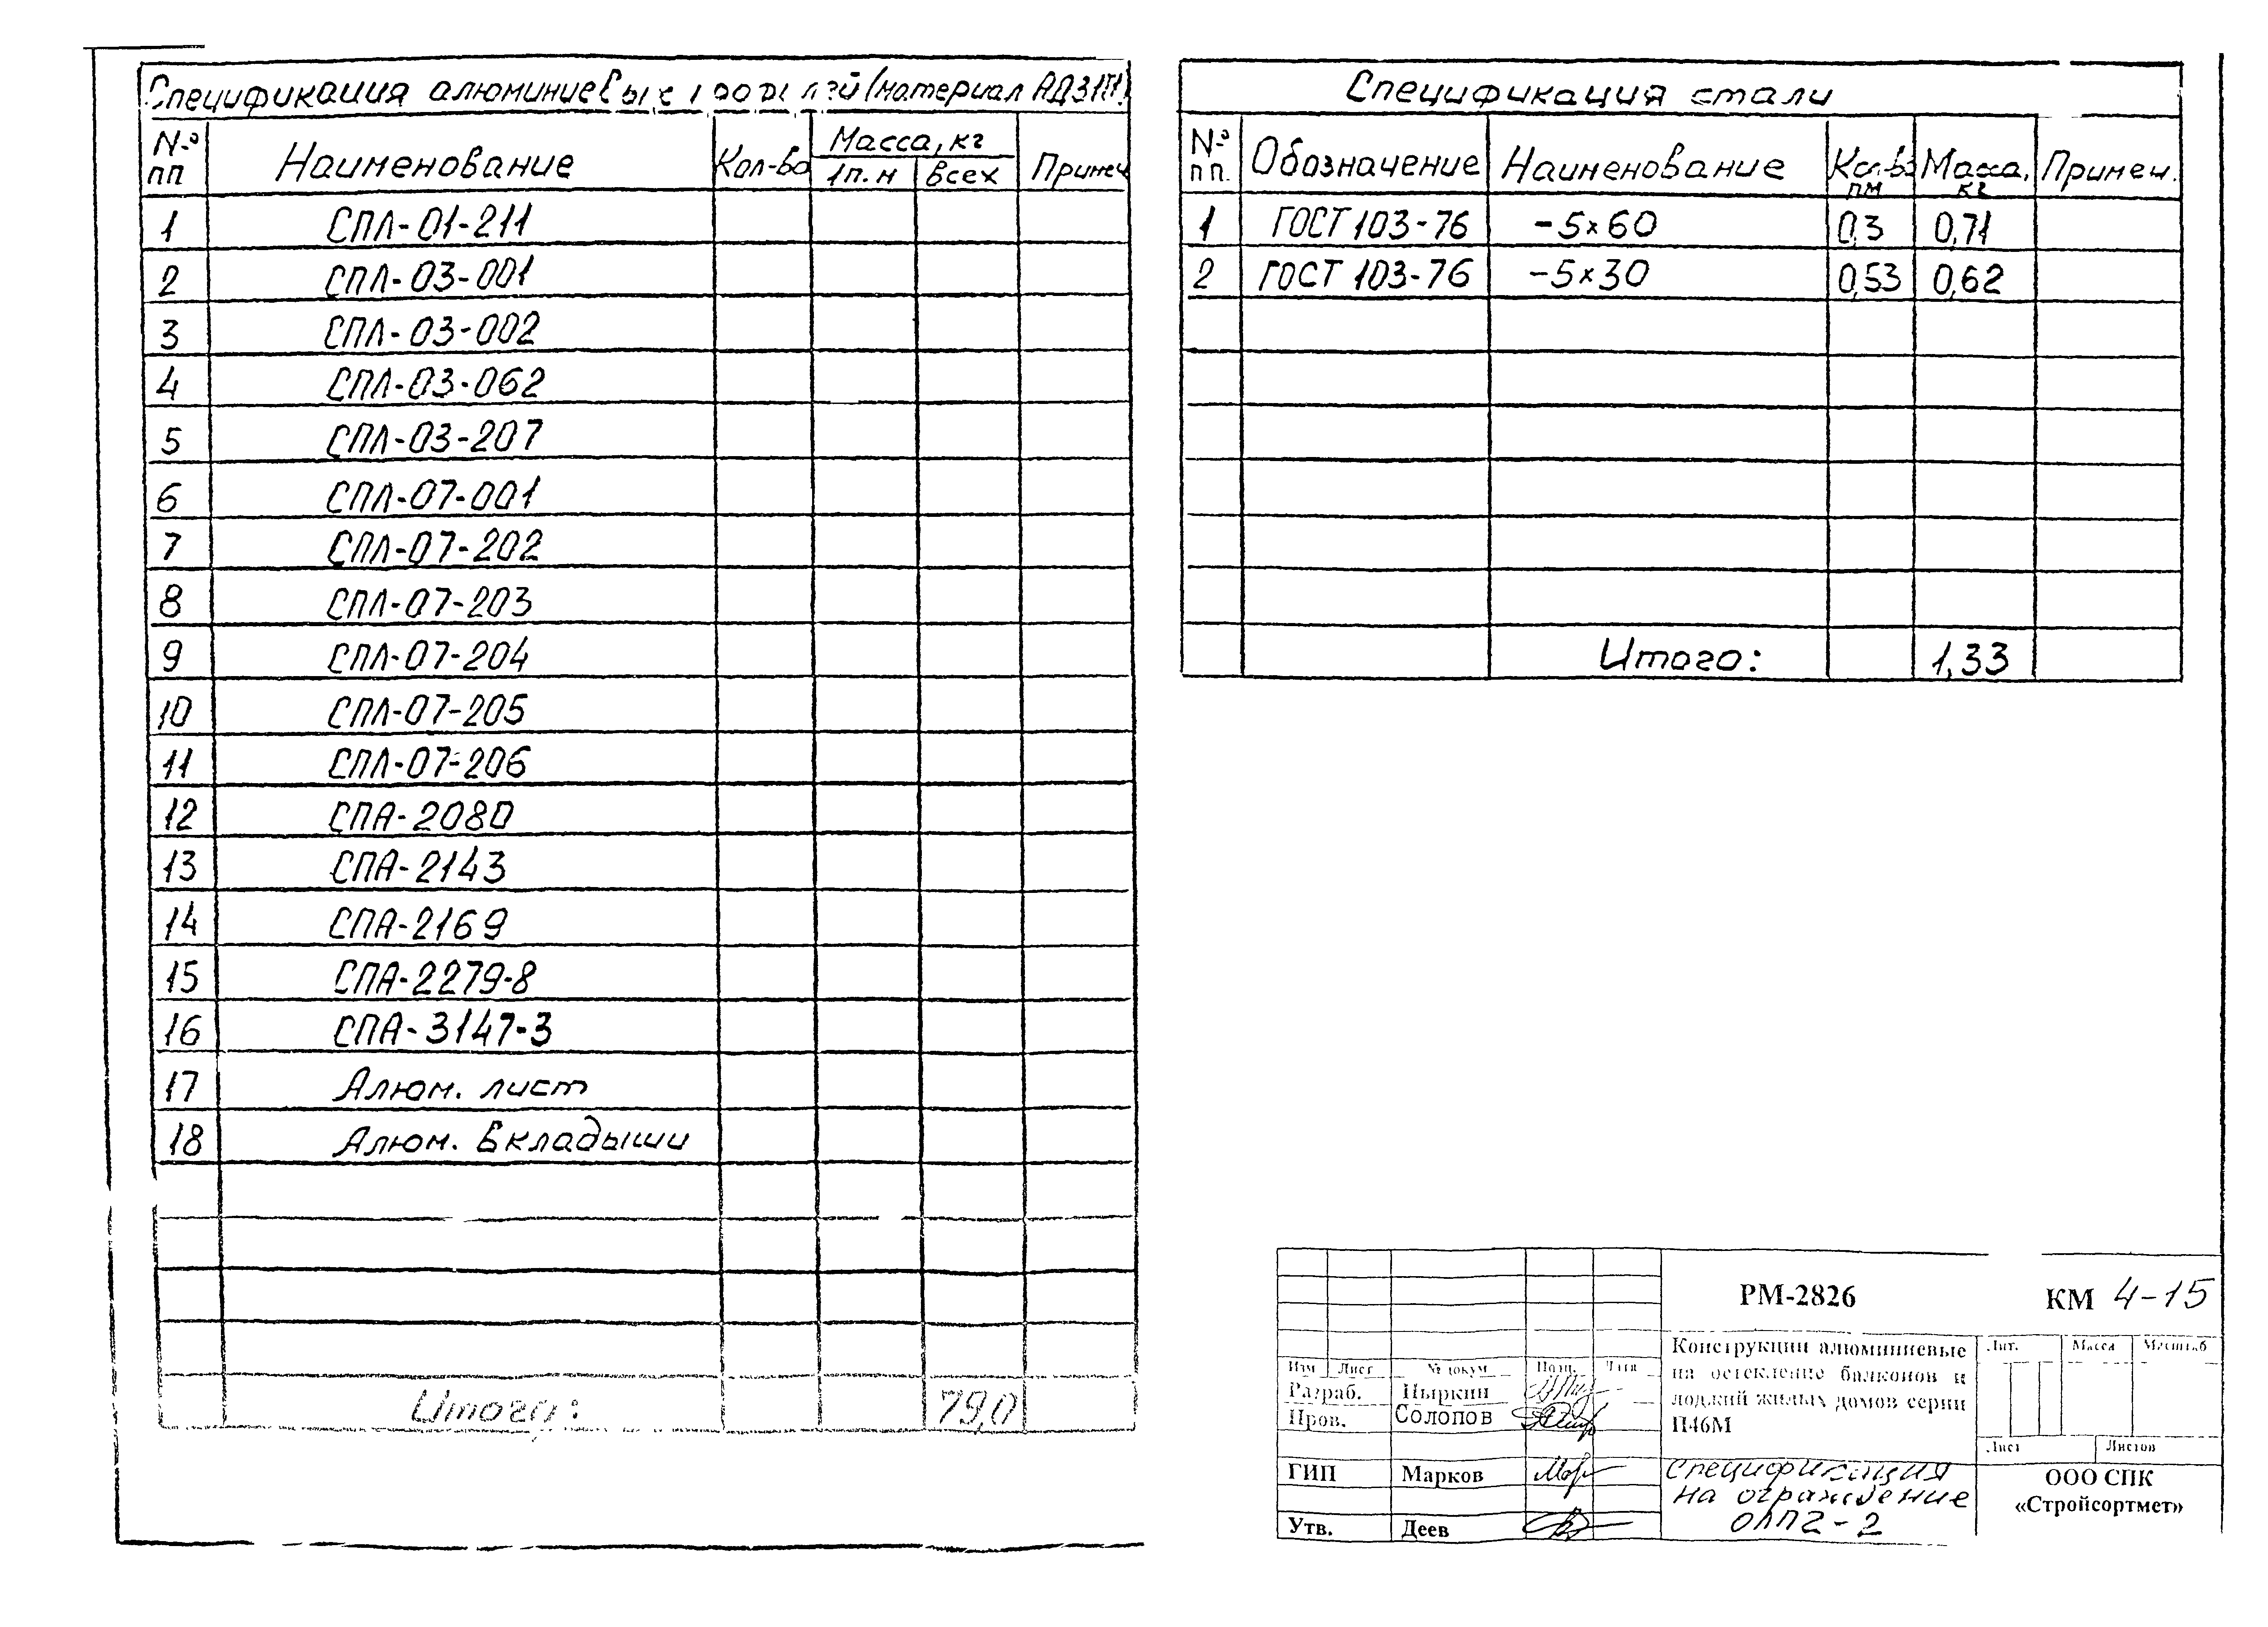 Спецификация алюминиевых профилей (материал АД31Т1)
№ пп Наименование Кол-во Масса, кг 1п.м всех Примеч
1 СПЛ-01-211
2 СПЛ-03-001
3 СПЛ-03-002
4 СПЛ-03-062
5 СПЛ-03-207
6 СПЛ-07-001
7 СПЛ-07-202
8 СПЛ-07-203
9 СПЛ-07-204
10 СПЛ-07-205
11 СПЛ-07-206
12 СПА-2080
13 СПА-2143
14 СПА-2169
15 СПА-2279-8
16 СПА-3147-3
17 Алюм. лист
18 Алюм. вкладыши
Итого: 79,0
Спецификация стали
№ пп. Обозначение Наименование Кол-во пм Масса, кг Примеч.
1 ГОСТ 103-76 -5×60 0,3 0,71
2 ГОСТ 103-76 -5×30 0,53 0,62
Итого: 1,33
РМ-2826 КМ 4-15
Изм Лист № докум Подп. Дата
Разраб. Цыркин
Пров. Солопов
ГИП Марков
Утв. Деев
Конструкции алюминиевые
на остекление балконов и
лоджий жилых домов серии
П46М
Лит. Масса Масштаб
Лист Листов
Спецификация
на ограждение
ОЛП2-2
ООО СПК
«Стройсортмет»